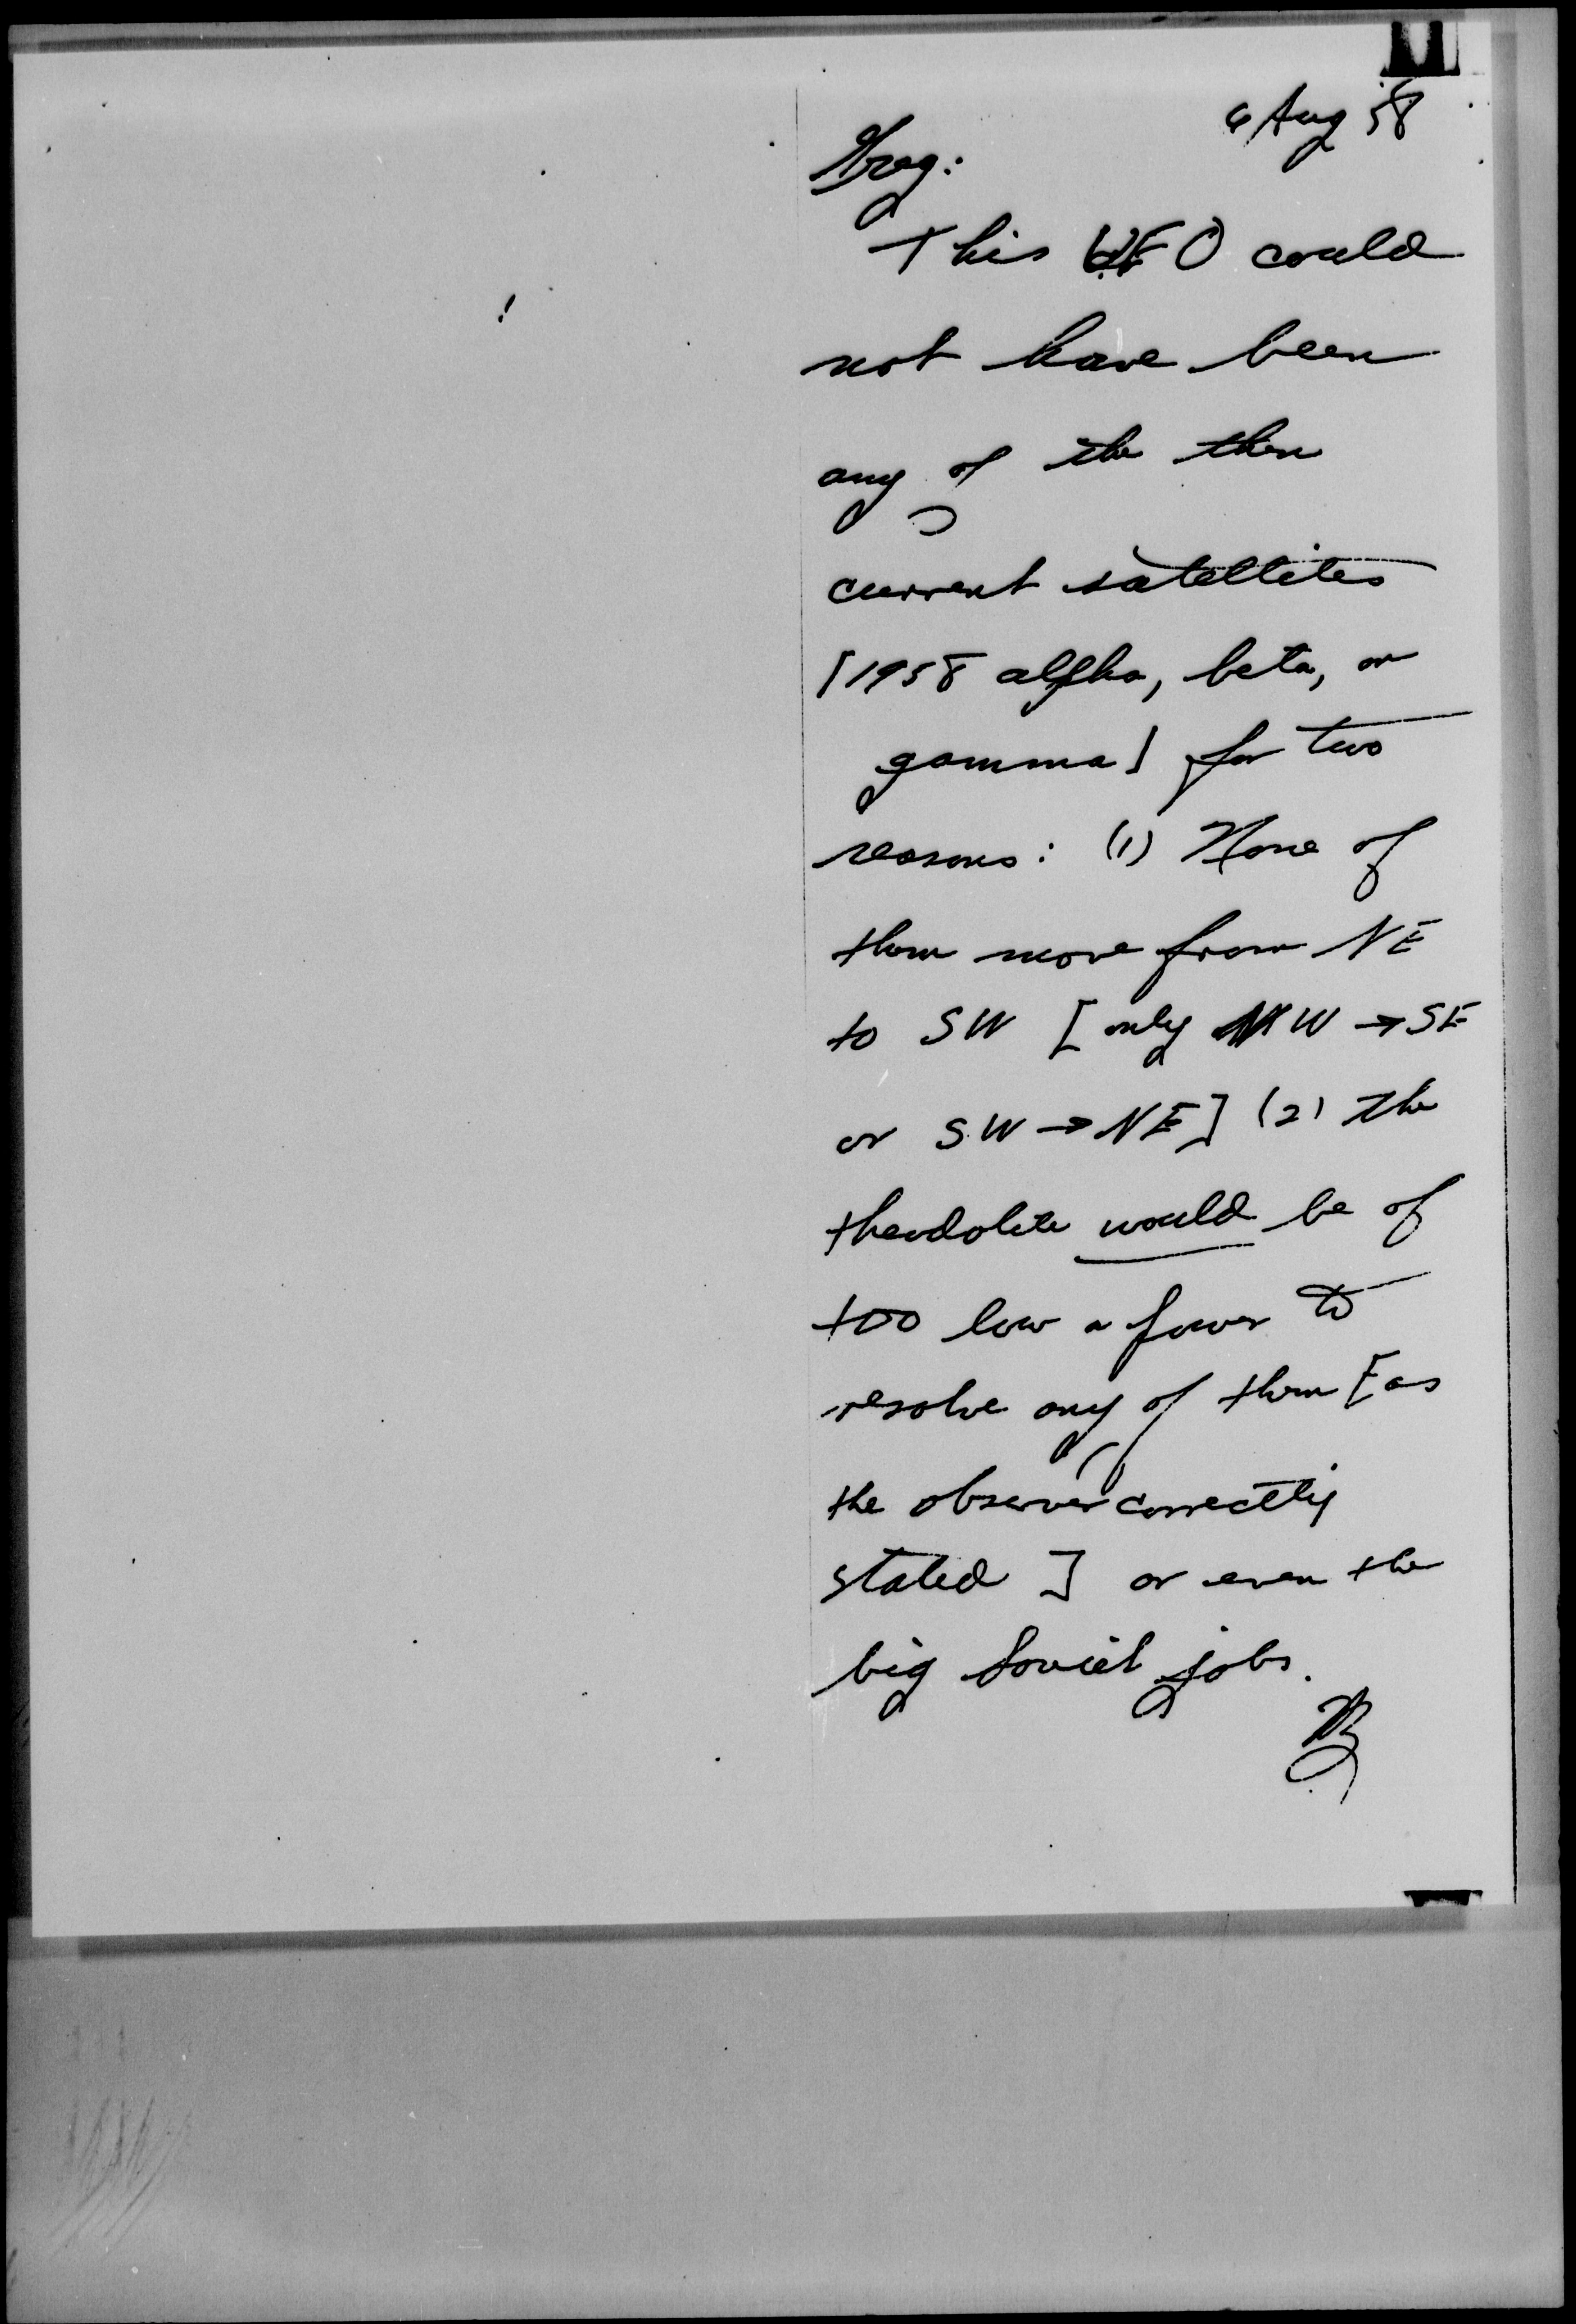 6 Aug 58
Greg:
This UFO could
not have been
any of the then
current satellites
[1958 alpha, beta, or
gamma] for two
reasons: (1) None of
them move from NE
to SW [only NW → SE
or SW → NE] (2) the
theodolite would be of
too low a power to
resolve any of them [as
the observer correctly
stated ] or even the
big Soviet jobs.